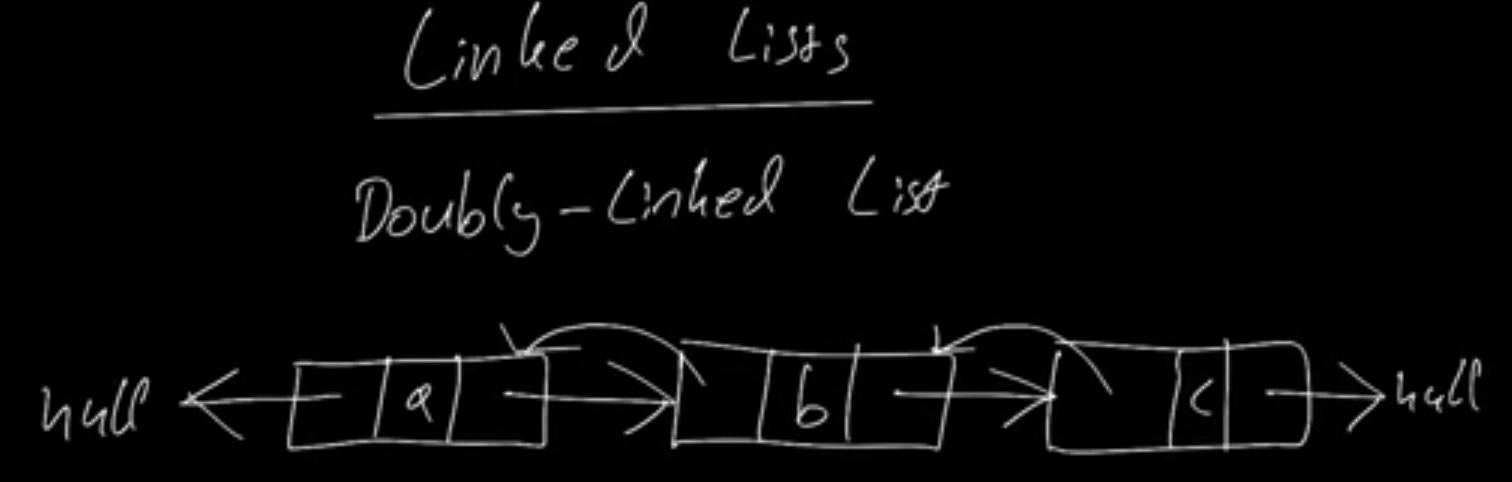 Linked Lists
Doubly-Linked List
null a b c null